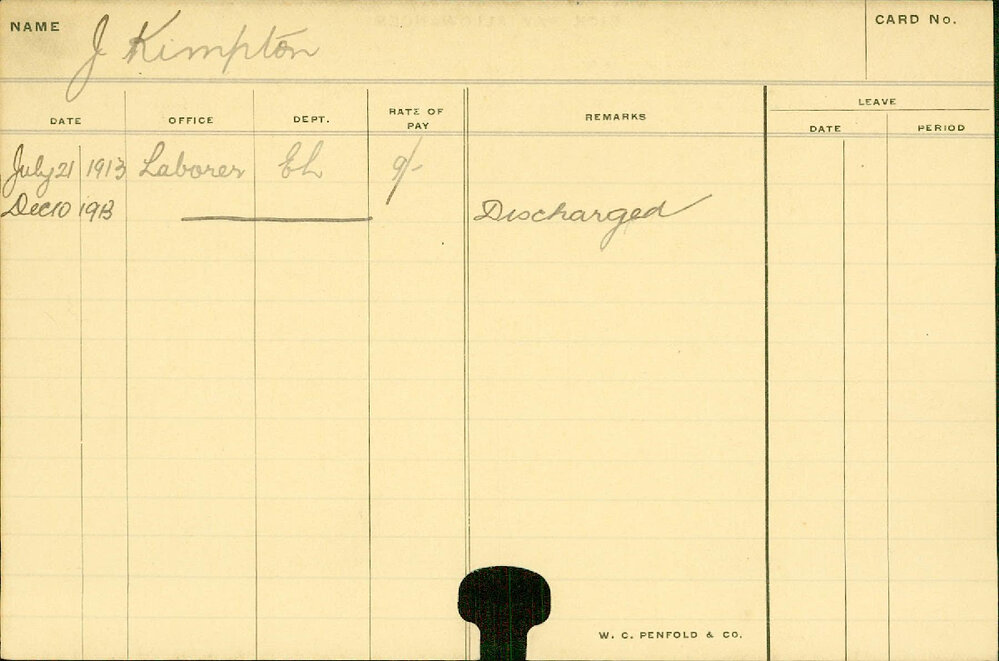 NAME J Kimpton CARD No.
DATE OFFICE DEPT. RATE OF PAY REMARKS LEAVE
DATE PERIOD
July 21 1913 Laborer EL 9/-
Dec 10 1913 Discharged
W. C. PENFOLD & CO.